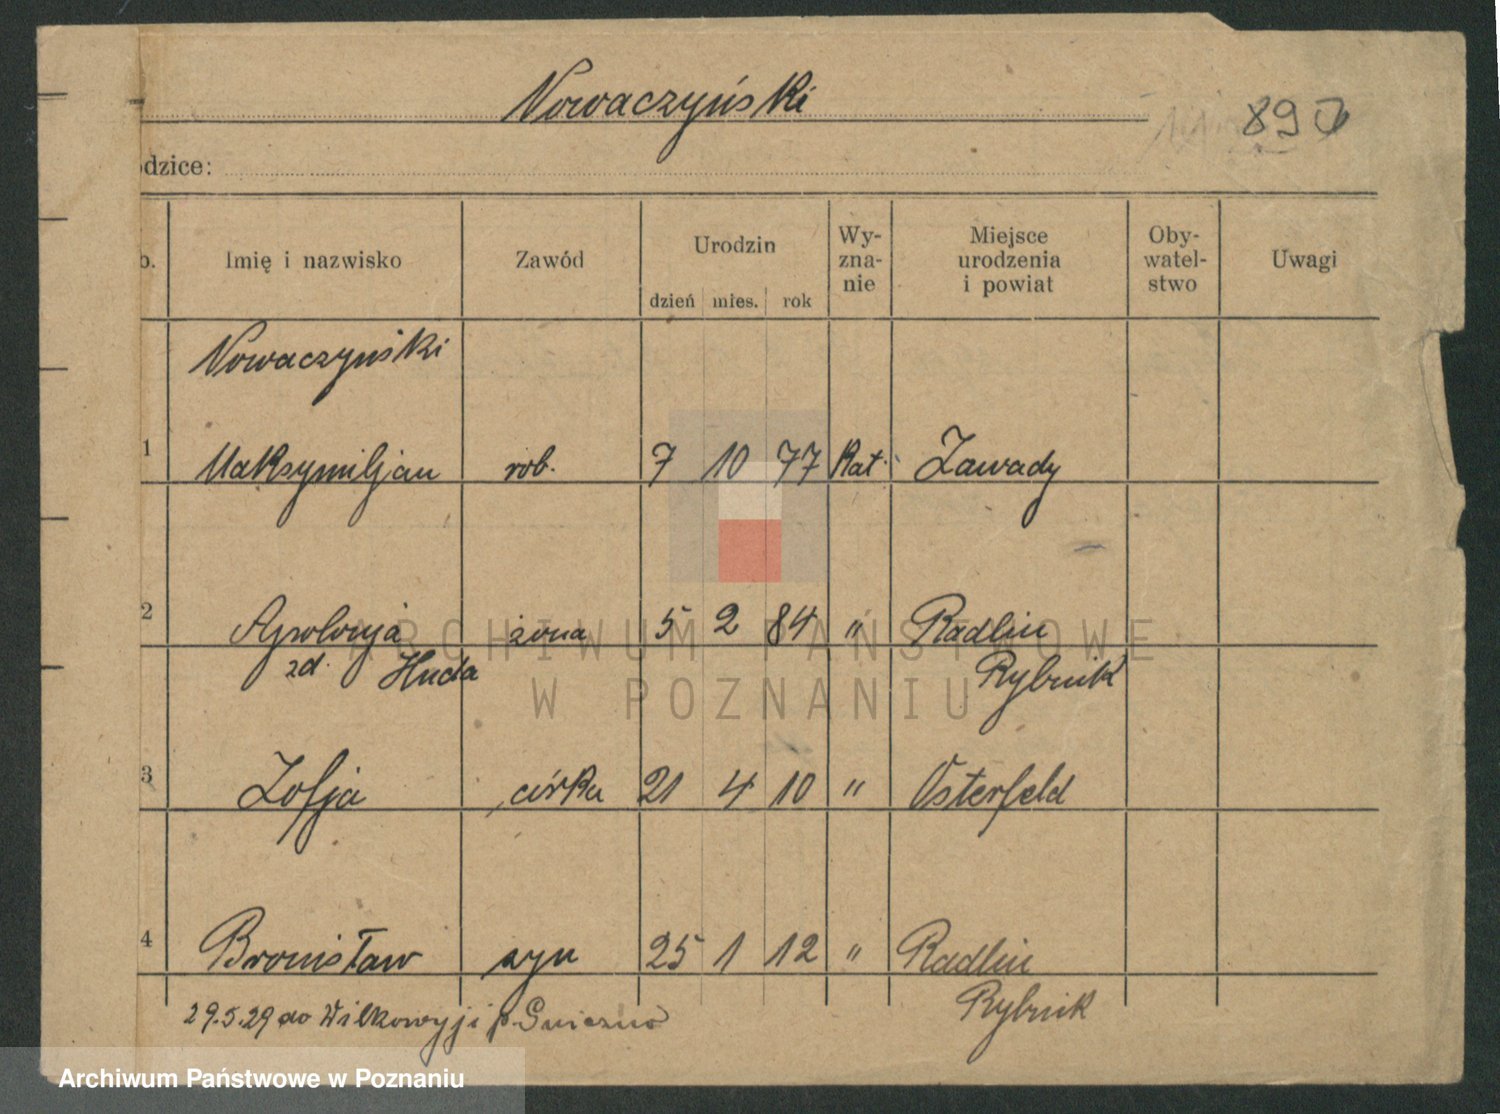 Nowaczyński
890
odzice:
b. Imię i nazwisko Zawód Urodzin dzień mies. rok Wy-zna-nie Miejsce urodzenia i powiat Oby-watel-stwo Uwagi
Nowaczyński
1 Maksymiljan rob. 7 10 77 Kat. Zawady
2 Apolonja żona 5 2 84 " Radlin
zd. Huda Rybnik
3 Zofja córka 21 4 10 " Osterfeld
4 Bronisław syn 25 1 12 " Radlin
Rybnik
29.5.29 do Wilkowyji p. Gniezno
ARCHIWUM PAŃSTWOWE
W POZNANIU
Archiwum Państwowe w Poznaniu